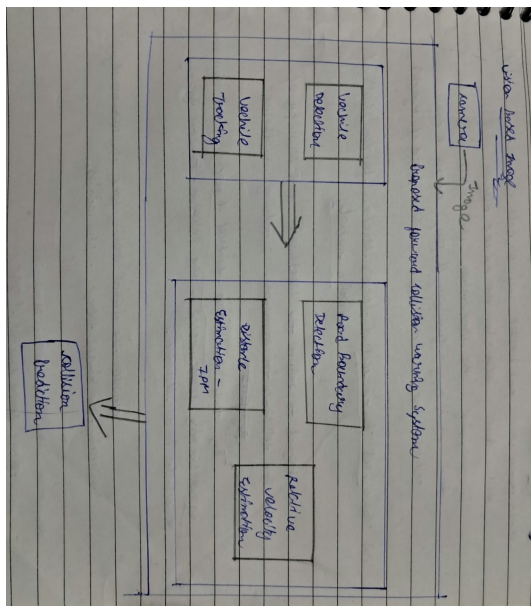 vision based image
camera
Image
Proposed forward collision warning System
Vechile
Detection
Vechile
Tracking
Road boundary
Detection
distance
Estimation -
IPM
relative
velocity
Estimation
collision
Predition